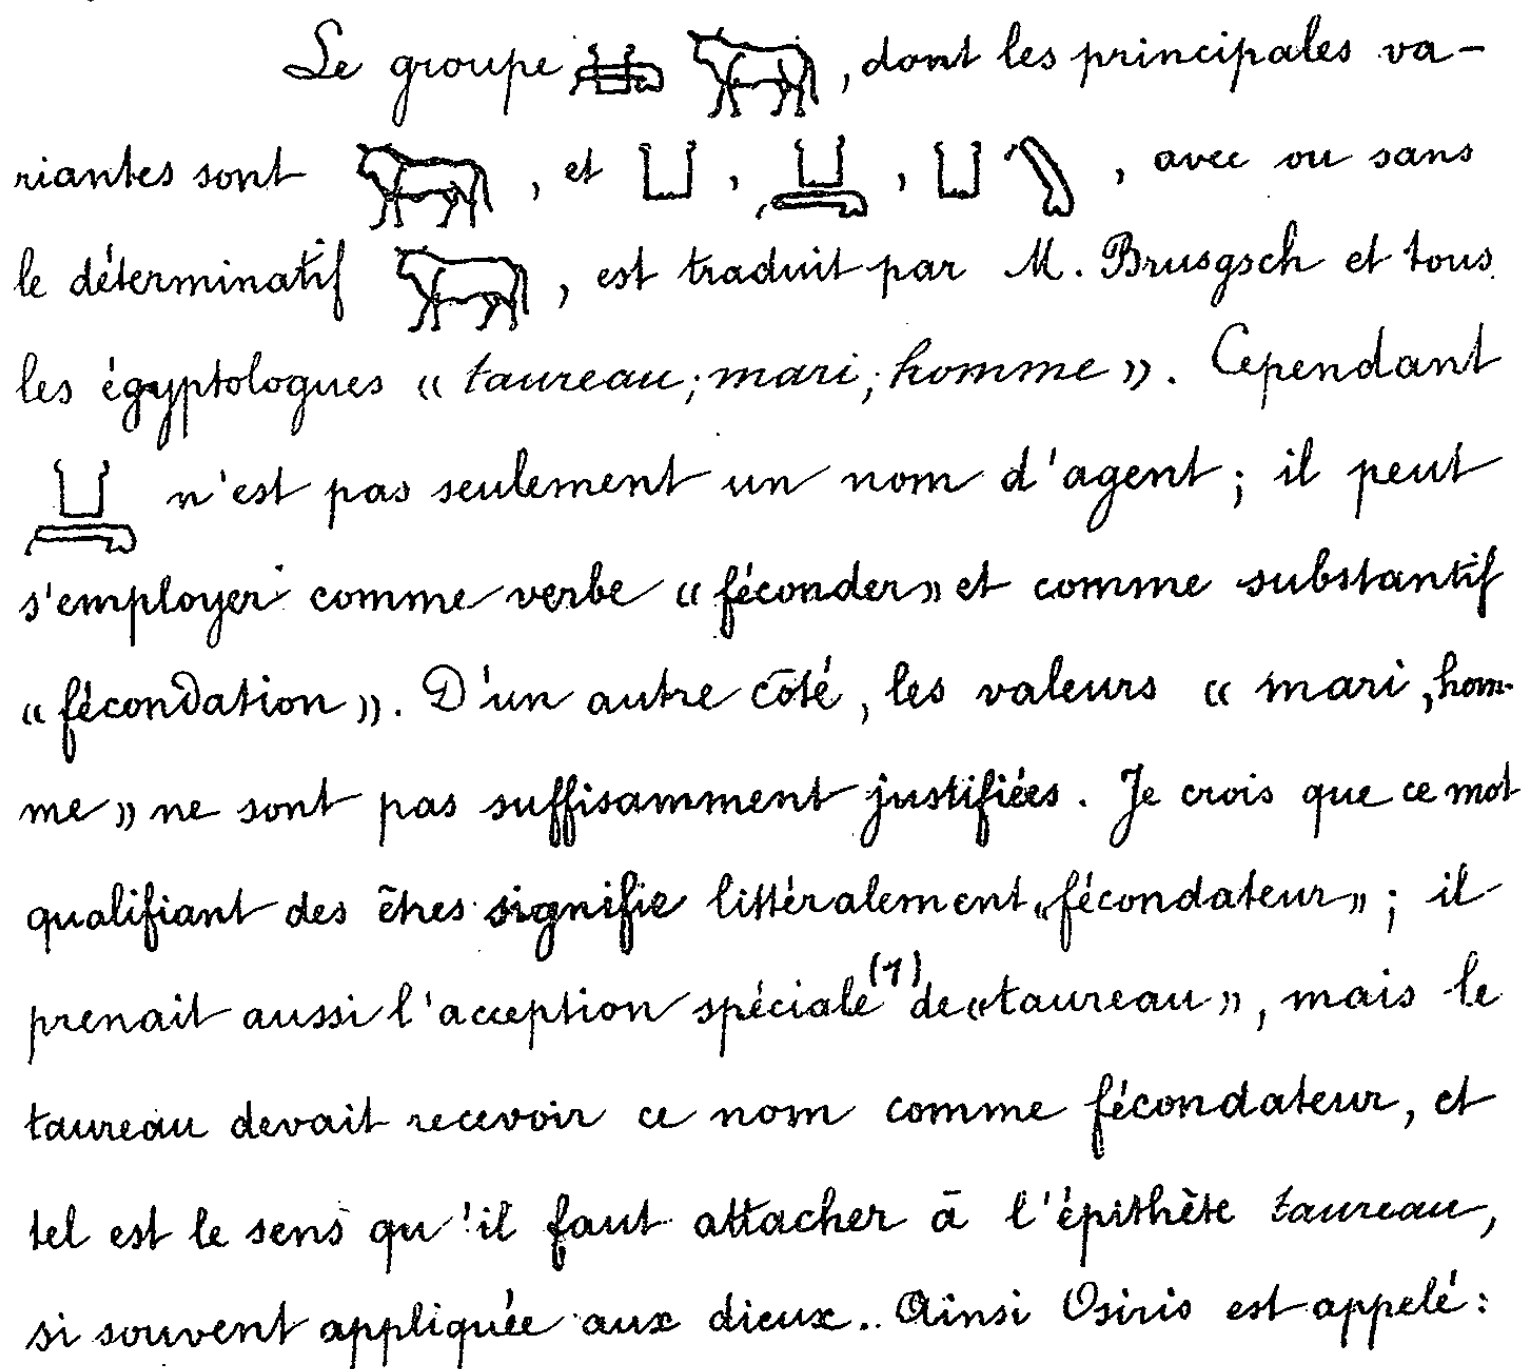 Le groupe 𓂓𓂺 𓃒, dont les principales va-
riantes sont 𓃒, et 𓂓, 𓂓𓂺, 𓂓𓂺, avec ou sans
le déterminatif 𓃒, est traduit par M. Brusgsch et tous
les égyptologues « taureau; mari; homme ». Cependant
𓂓𓂺 n'est pas seulement un nom d'agent; il peut
s'employer comme verbe « féconder » et comme substantif
« fécondation ». D'un autre côté, les valeurs « mari, hom-
me » ne sont pas suffisamment justifiées. Je crois que ce mot
qualifiant des êtres signifie littéralement « fécondateur »; il
prenait aussi l'acception spéciale (1) de « taureau », mais le
taureau devait recevoir ce nom comme fécondateur, et
tel est le sens qu'il faut attacher à l'épithète taureau,
si souvent appliquée aux dieux. Ainsi Osiris est appelé: